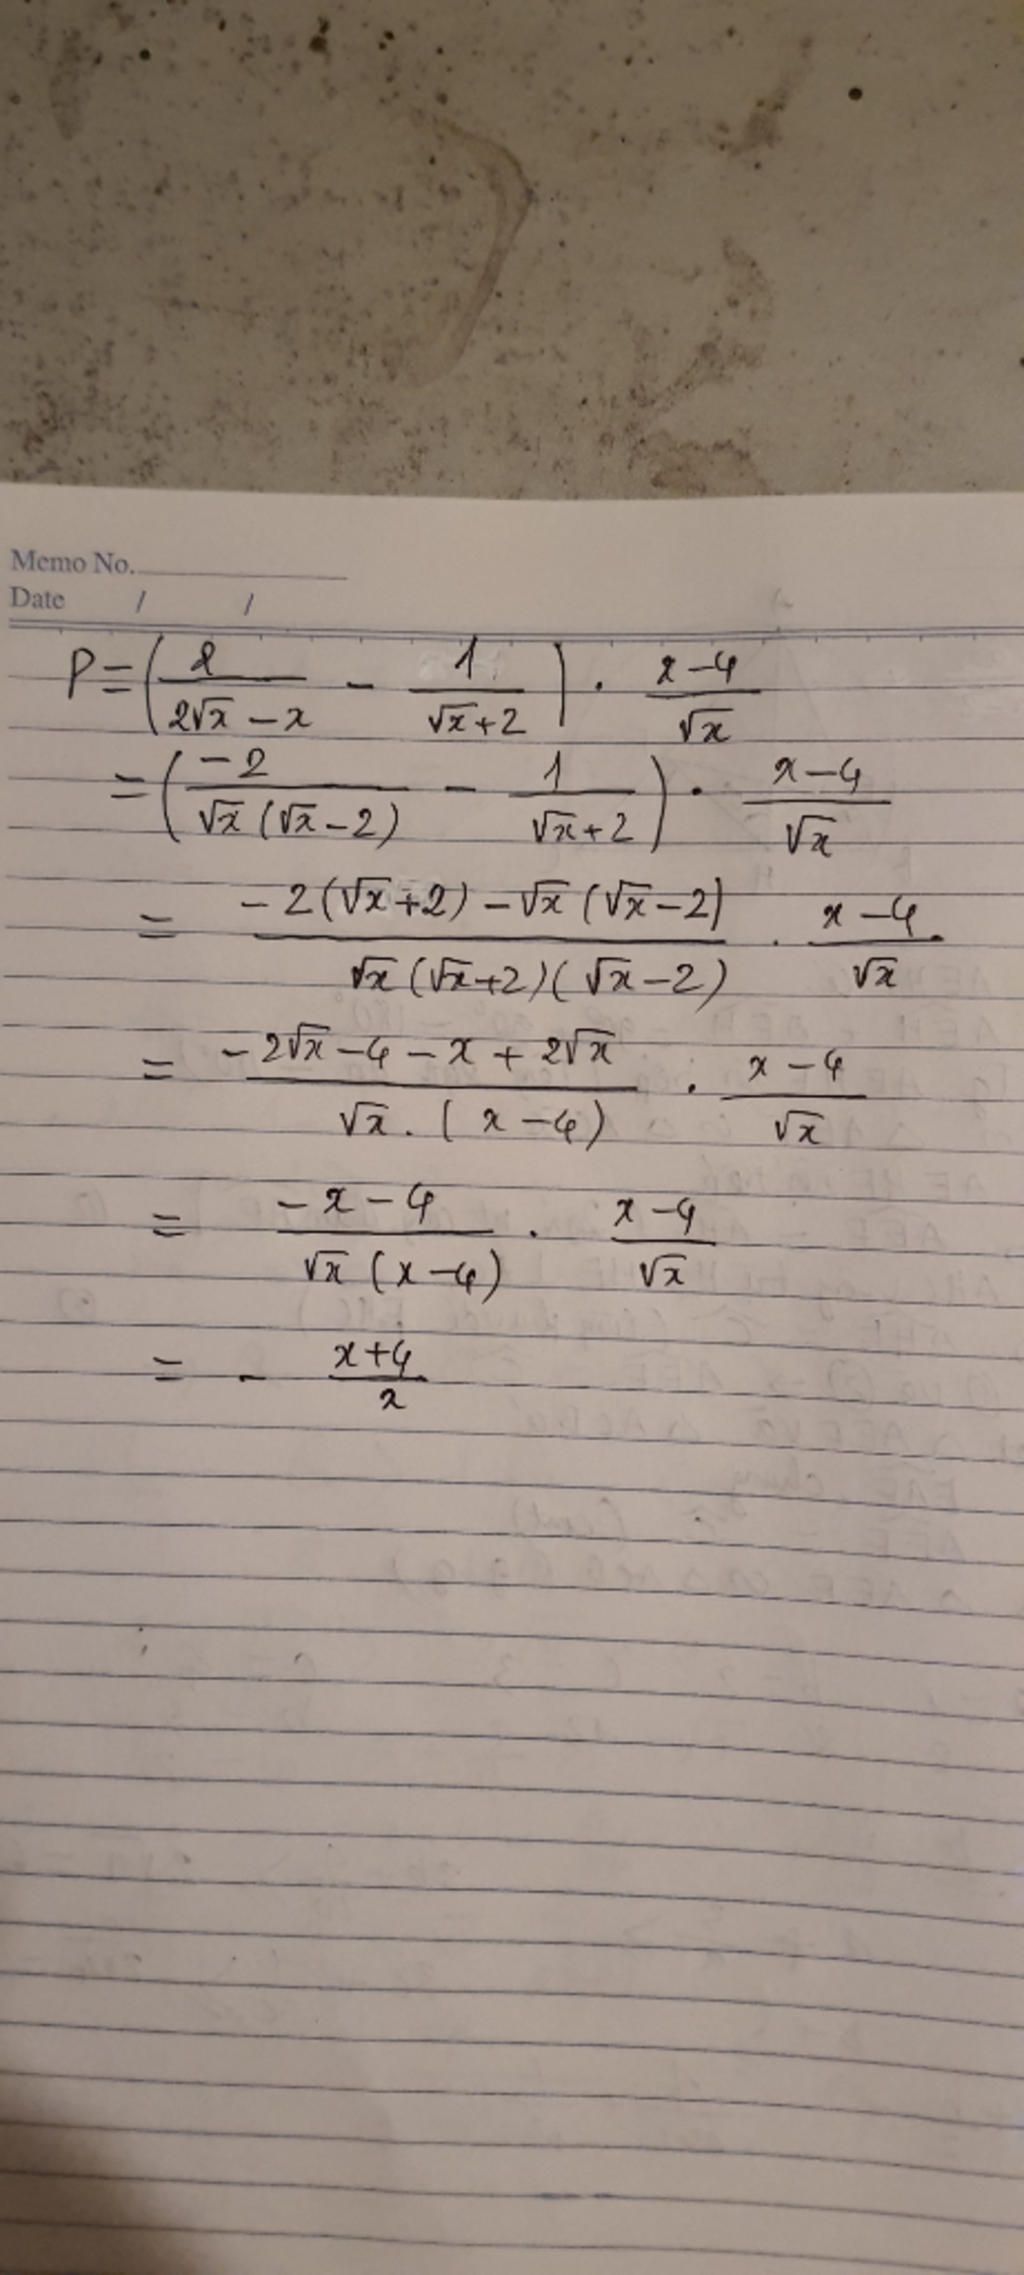 Memo No.
Date / /
P = (2/(2√x − x) − 1/(√x+2)) · (x−4)/√x
= (−2/(√x(√x−2)) − 1/(√x+2)) · (x−4)/√x
= (−2(√x+2) − √x(√x−2))/(√x(√x+2)(√x−2)) · (x−4)/√x
= (−2√x − 4 − x + 2√x)/(√x.(x−4)) · (x−4)/√x
= (−x−4)/(√x(x−4)) · (x−4)/√x
= − (x+4)/x